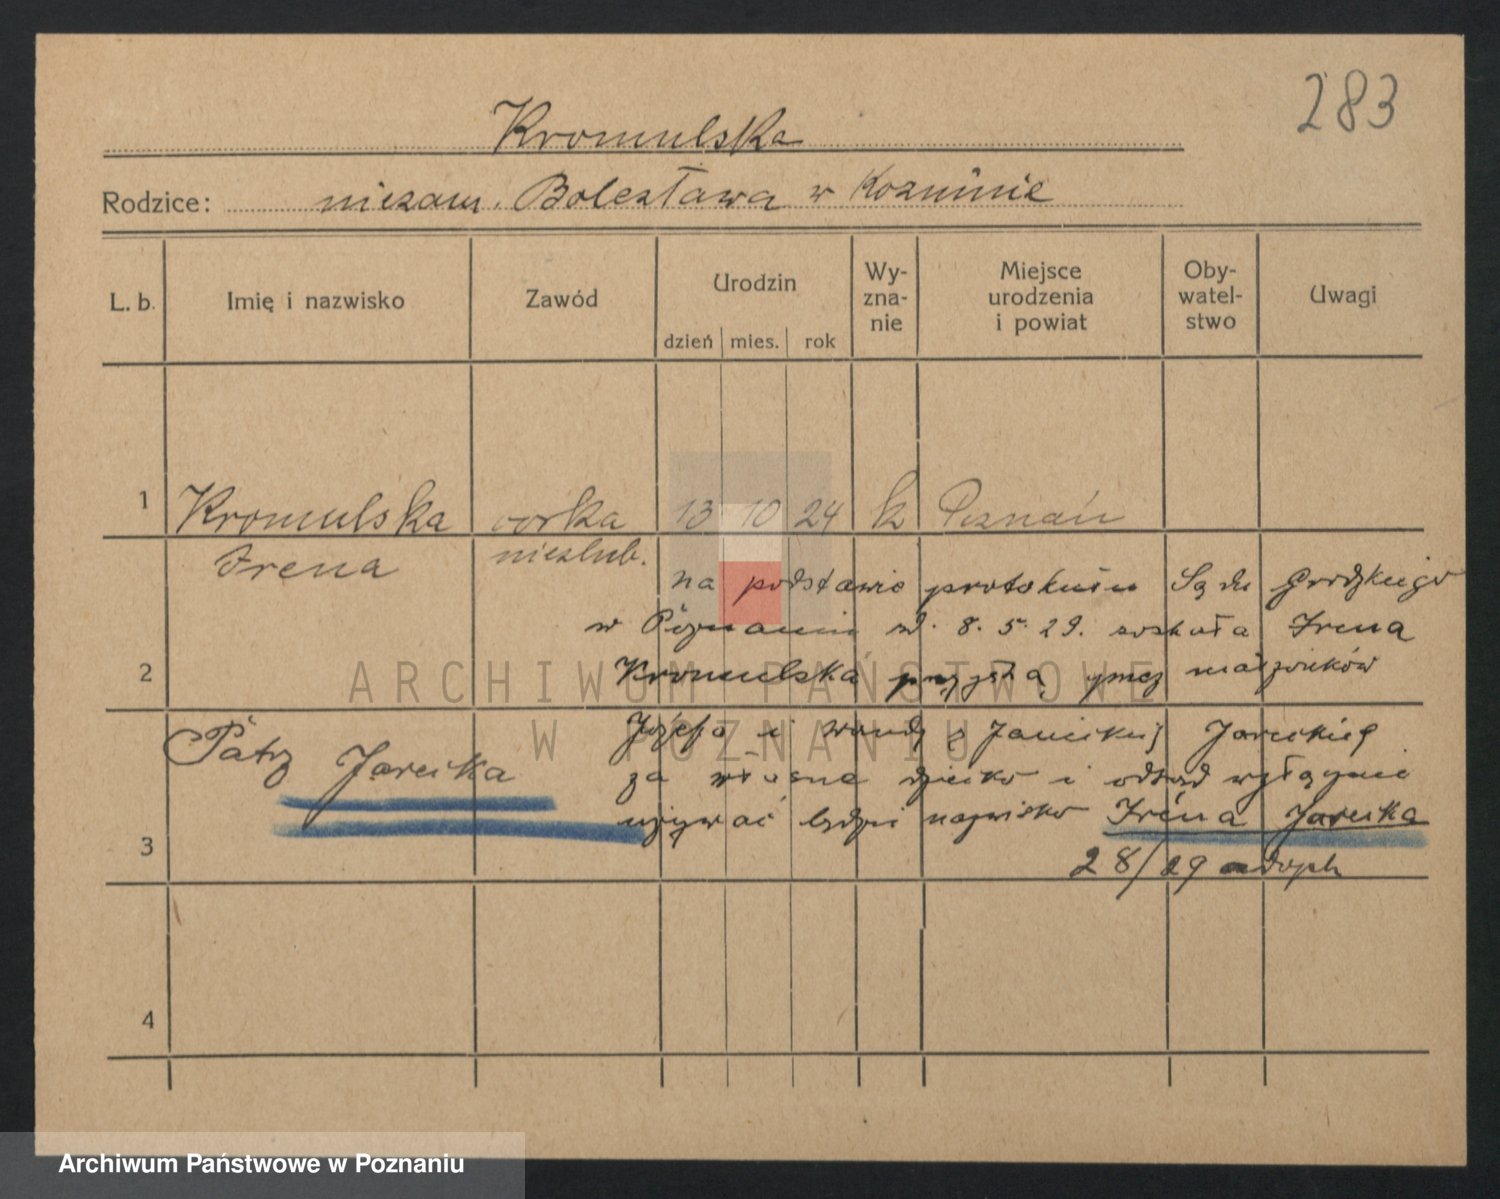 283
Kromulska
Rodzice: niezam. Bolesława w Kozminie
L. b.
Imię i nazwisko
Zawód
Urodzin
dzień
mies.
rok
Wy-
zna-
nie
Miejsce
urodzenia
i powiat
Oby-
watel-
stwo
Uwagi
1 Kromulska córka 13 10 24 k Poznań
Irena nieślub.
na podstawie protokułu Sądu Grodzkiego
w Poznaniu d. 8. 5. 29. została Irena
2
Kromulska przyjętą przez małżonków
Józefa i Wandę z Janickich Jareckich
Patrz Jarecka
za własne dziecko i odtąd wyłącznie
3
używać będzie nazwisko Irena Jarecka
28/29 adopt
4
ARCHIWUM PAŃSTWOWE
W POZNANIU
Archiwum Państwowe w Poznaniu